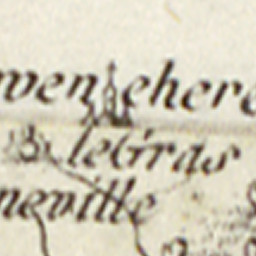 wen ehere
le Gras
neville